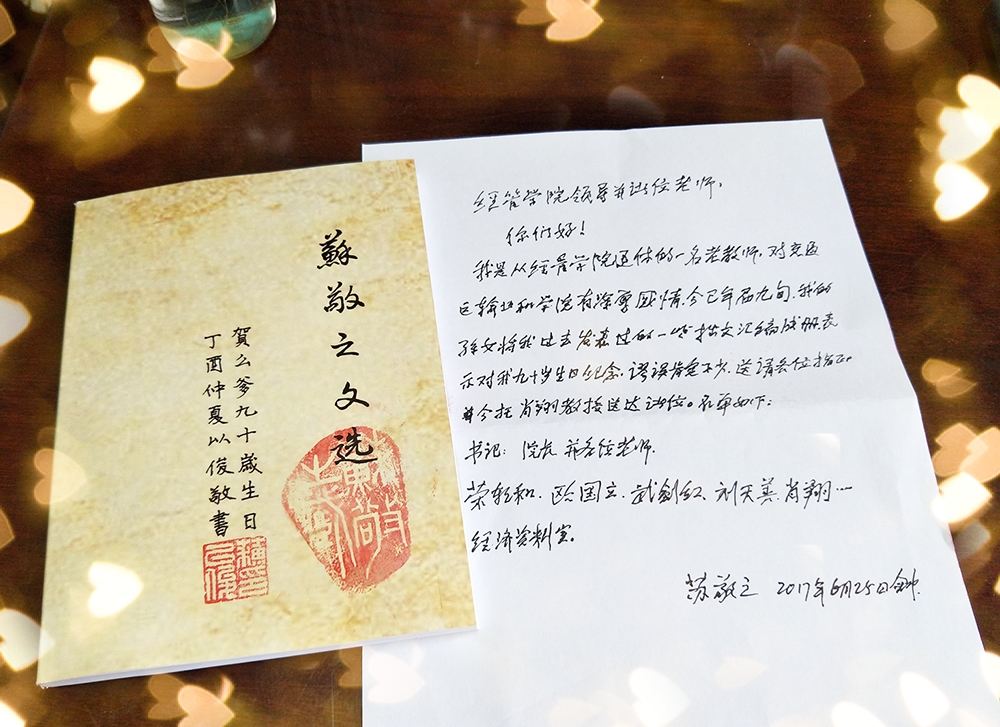 蘇敬之文选
賀么爹九十歲生日
丁酉仲夏以俊敬書
经管学院领导并诸位老师,
你们好!
我是从经管学院退休的一名老教师,对交通
运输业和学院有深厚感情,今已年届九旬,我的
孙女将我过去发表过的一些拙文汇编成册表
示对我九十岁生日纪念,谬误肯定不少,送请各位指正
并今托肖翔教授送达诸位。名单如下:
书记: 院长 并各位老师.
荣朝和、欧国立、武剑红、刘天善、肖翔…
经济资料室。
苏敬之 2017年6月25日